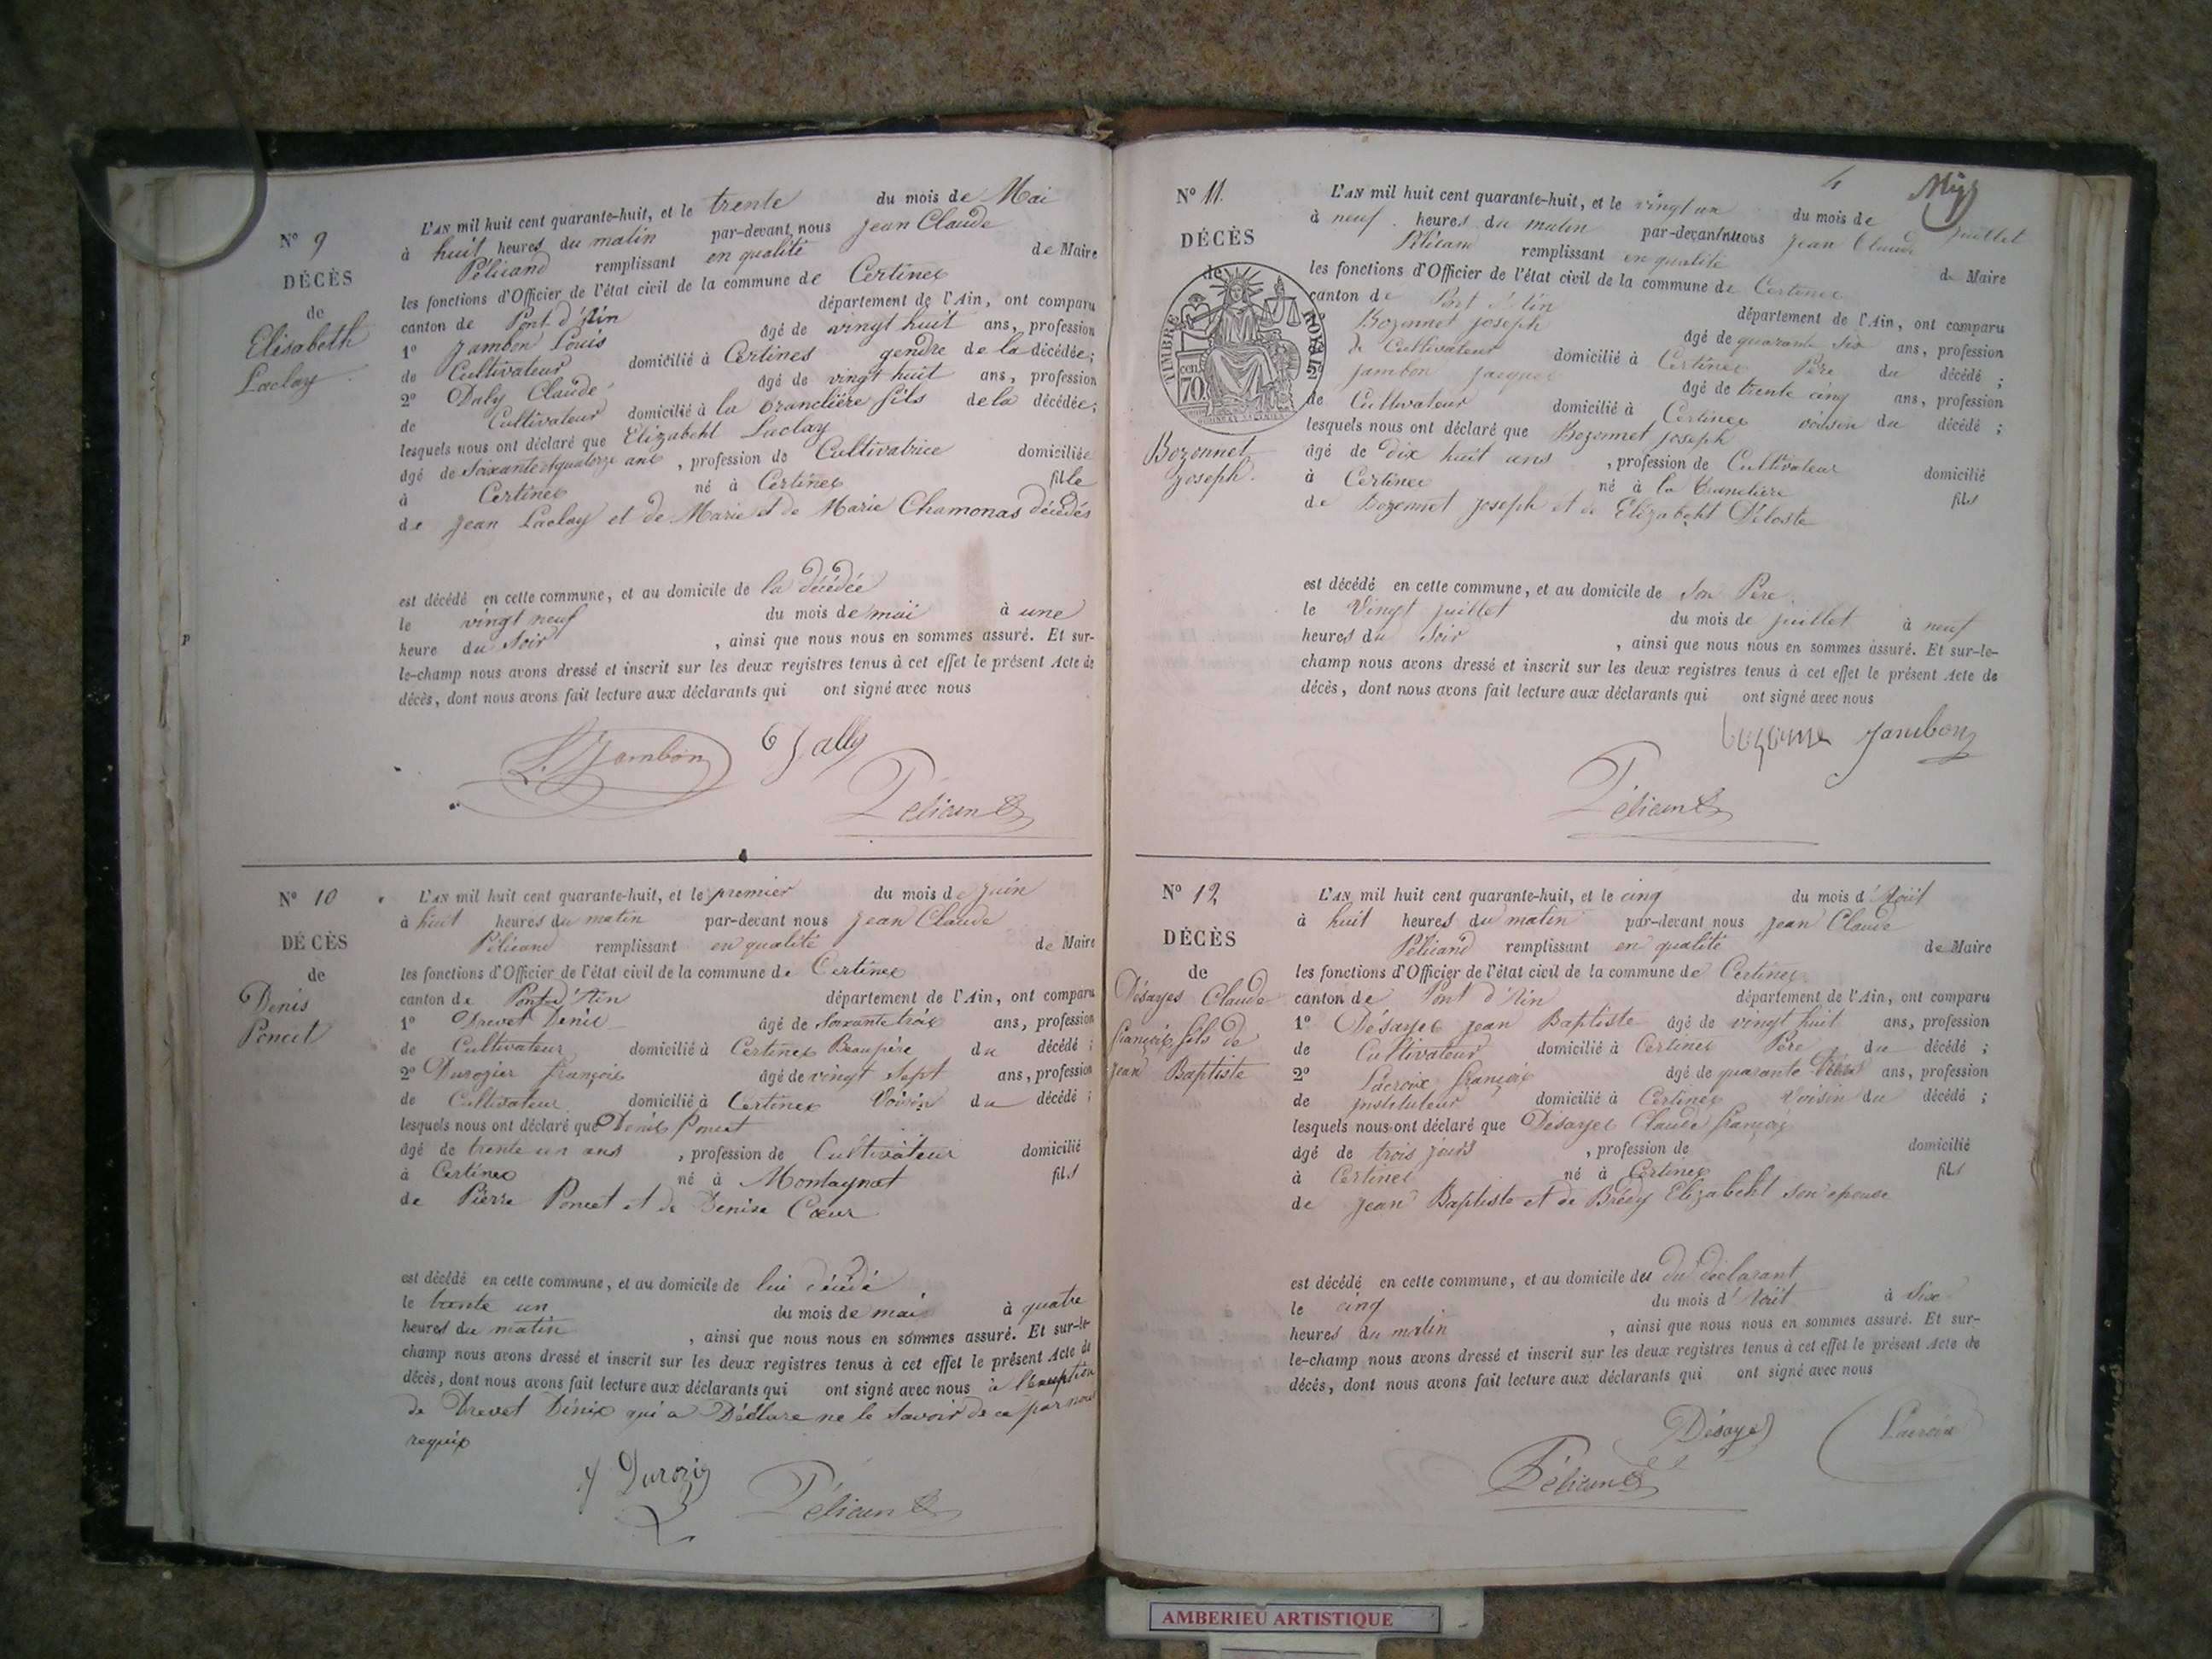 N° 9
DÉCÈS
de
Elisabeth
Laclay
L'AN mil huit cent quarante-huit, et le trente du mois de Mai
à huit heures du matin par-devant nous Jean Claude
Pélicand remplissant en qualité de Maire
les fonctions d'Officier de l'état civil de la commune de Certines
canton de Pont d'Ain département de l'Ain, ont comparu
1° Jambon Louis âgé de vingt huit ans, profession
de Cultivateur domicilié à Certines gendre de la décédée;
2° Daly Claude âgé de vingt huit ans, profession
de Cultivateur domicilié à la tranclière fils de la décédée;
lesquels nous ont déclaré que Elizabeht Laclay
âgé de Soixante et quatorze ans, profession de Cultivatrice domiciliée
à Certines né à Certines fille
de Jean Laclay et de Marie et de Marie Chamonas décédés
est décédé en cette commune, et au domicile de la décédée
le vingt neuf du mois de mai à une
heure du Soir, ainsi que nous nous en sommes assuré. Et sur-
le-champ nous avons dressé et inscrit sur les deux registres tenus à cet effet le présent Acte de
décès, dont nous avons fait lecture aux déclarants qui ont signé avec nous
L. Jambon
Pélicand
N° 10
DÉCÈS
de
Denis
Poncet
L'AN mil huit cent quarante-huit, et le premier du mois de Juin
à huit heures du matin par-devant nous Jean Claude
Pélicand remplissant en qualité de Maire
les fonctions d'Officier de l'état civil de la commune de Certines
canton de Pont d'Ain département de l'Ain, ont comparu
1° Drevet Denis âgé de Soixante trois ans, profession
de Cultivateur domicilié à Certines Beaupère du décédé;
2° Durozier françois âgé de vingt Sept ans, profession
de Cultivateur domicilié à Certines Voisin du décédé;
lesquels nous ont déclaré que Denis Poncet
âgé de trente un ans, profession de Cultivateur domicilié
à Certines né à Montagnat fils
de Pierre Poncet et de Denise Cœur
est décédé en cette commune, et au domicile de lui décédé
le trente un du mois de mai à quatre
heures du matin, ainsi que nous nous en sommes assuré. Et sur-le-
champ nous avons dressé et inscrit sur les deux registres tenus à cet effet le présent Acte de
décès, dont nous avons fait lecture aux déclarants qui ont signé avec nous à l'exception
de Drevet Dénis qui a Déclare ne le Savoir de ce par nous
requis
Pélicand
4
N° 11.
DÉCÈS
de
TIMBRE ROYAL
70
Bozonnet
Joseph.
L'AN mil huit cent quarante-huit, et le vingt un du mois de juillet
à neuf heures du matin par-devant nous Jean Claude
Pélicand remplissant en qualité de Maire
les fonctions d'Officier de l'état civil de la commune de Certines
canton de Pont d'Ain département de l'Ain, ont comparu
Bozonnet Joseph âgé de quarante Six ans, profession
de Cultivateur domicilié à Certines Père du décédé;
Jambon Jacques âgé de trente cinq ans, profession
de Cultivateur domicilié à Certines voisin du décédé;
lesquels nous ont déclaré que Bozonnet Joseph
âgé de dix huit ans, profession de Cultivateur domicilié
à Certines né à la tranclière fils
de Bozonnet Joseph et de Elizabeht
est décédé en cette commune, et au domicile de Son Père
le Vingt juillet du mois de juillet à neuf
heures du Soir, ainsi que nous nous en sommes assuré. Et sur-le-
champ nous avons dressé et inscrit sur les deux registres tenus à cet effet le présent Acte de
décès, dont nous avons fait lecture aux déclarants qui ont signé avec nous
Jambon
Pélicand
N° 12
DÉCÈS
de
Désayes Claude
françois fils de
Jean Baptiste
L'AN mil huit cent quarante-huit, et le cinq du mois d'Août
à huit heures du matin par-devant nous Jean Claude
Pélicand remplissant en qualité de Maire
les fonctions d'Officier de l'état civil de la commune de Certines
canton de Pont d'Ain département de l'Ain, ont comparu
1° Désayes Jean Baptiste âgé de vingt huit ans, profession
de Cultivateur domicilié à Certines Père du décédé;
2° Lacroix françois âgé de quarante ans, profession
de instituteur domicilié à Certines Voisin du décédé;
lesquels nous ont déclaré que Désayes Claude françois
âgé de trois jours, profession de domicilié
à Certines né à Certines fils
de Jean Baptiste et de Brévy Elizabeht son épouse
est décédé en cette commune, et au domicile des du déclarant
le cinq du mois d'Août à Six
heures du matin, ainsi que nous nous en sommes assuré. Et sur-
le-champ nous avons dressé et inscrit sur les deux registres tenus à cet effet le présent Acte de
décès, dont nous avons fait lecture aux déclarants qui ont signé avec nous
Désayes Lacroix
Pélicand
AMBERIEU ARTISTIQUE